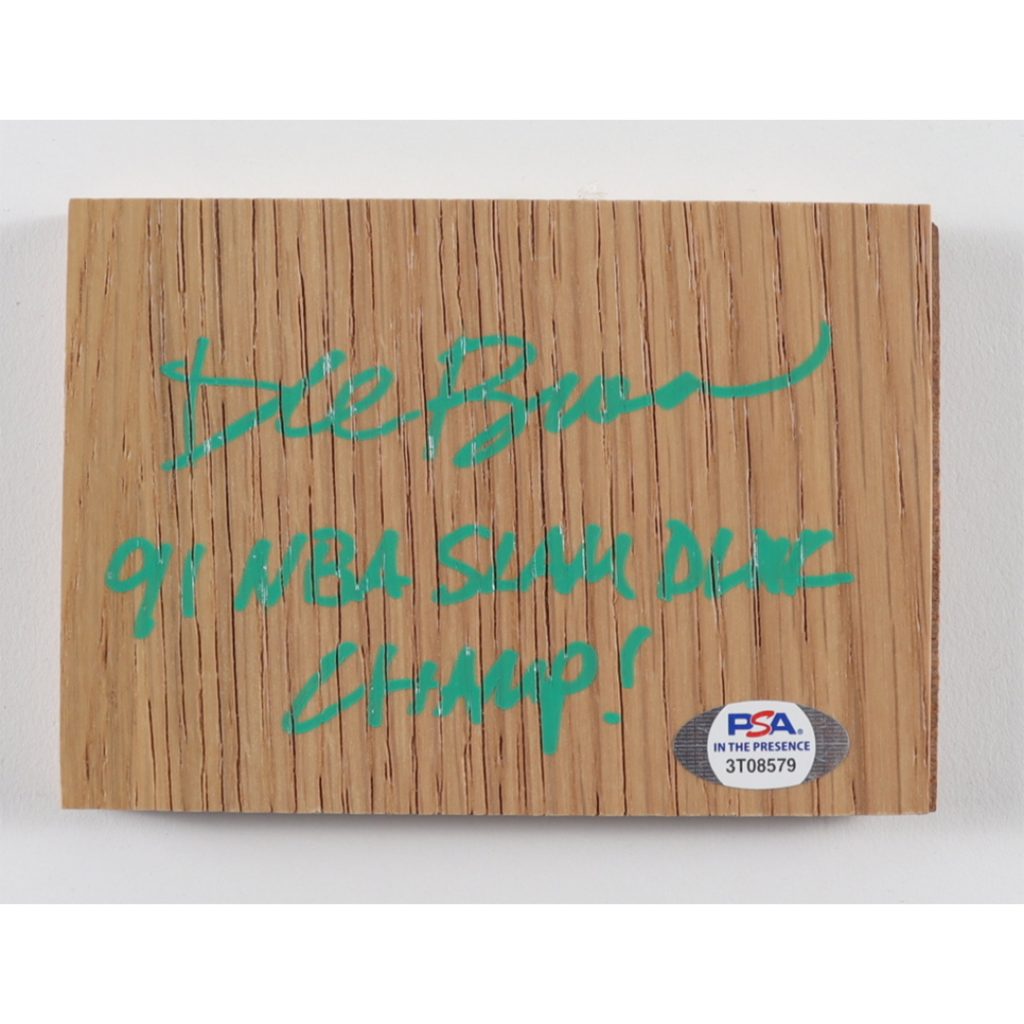 Dee Brown
91 NBA SLAM DUNK
CHAMP!
PSA
IN THE PRESENCE
3T08579